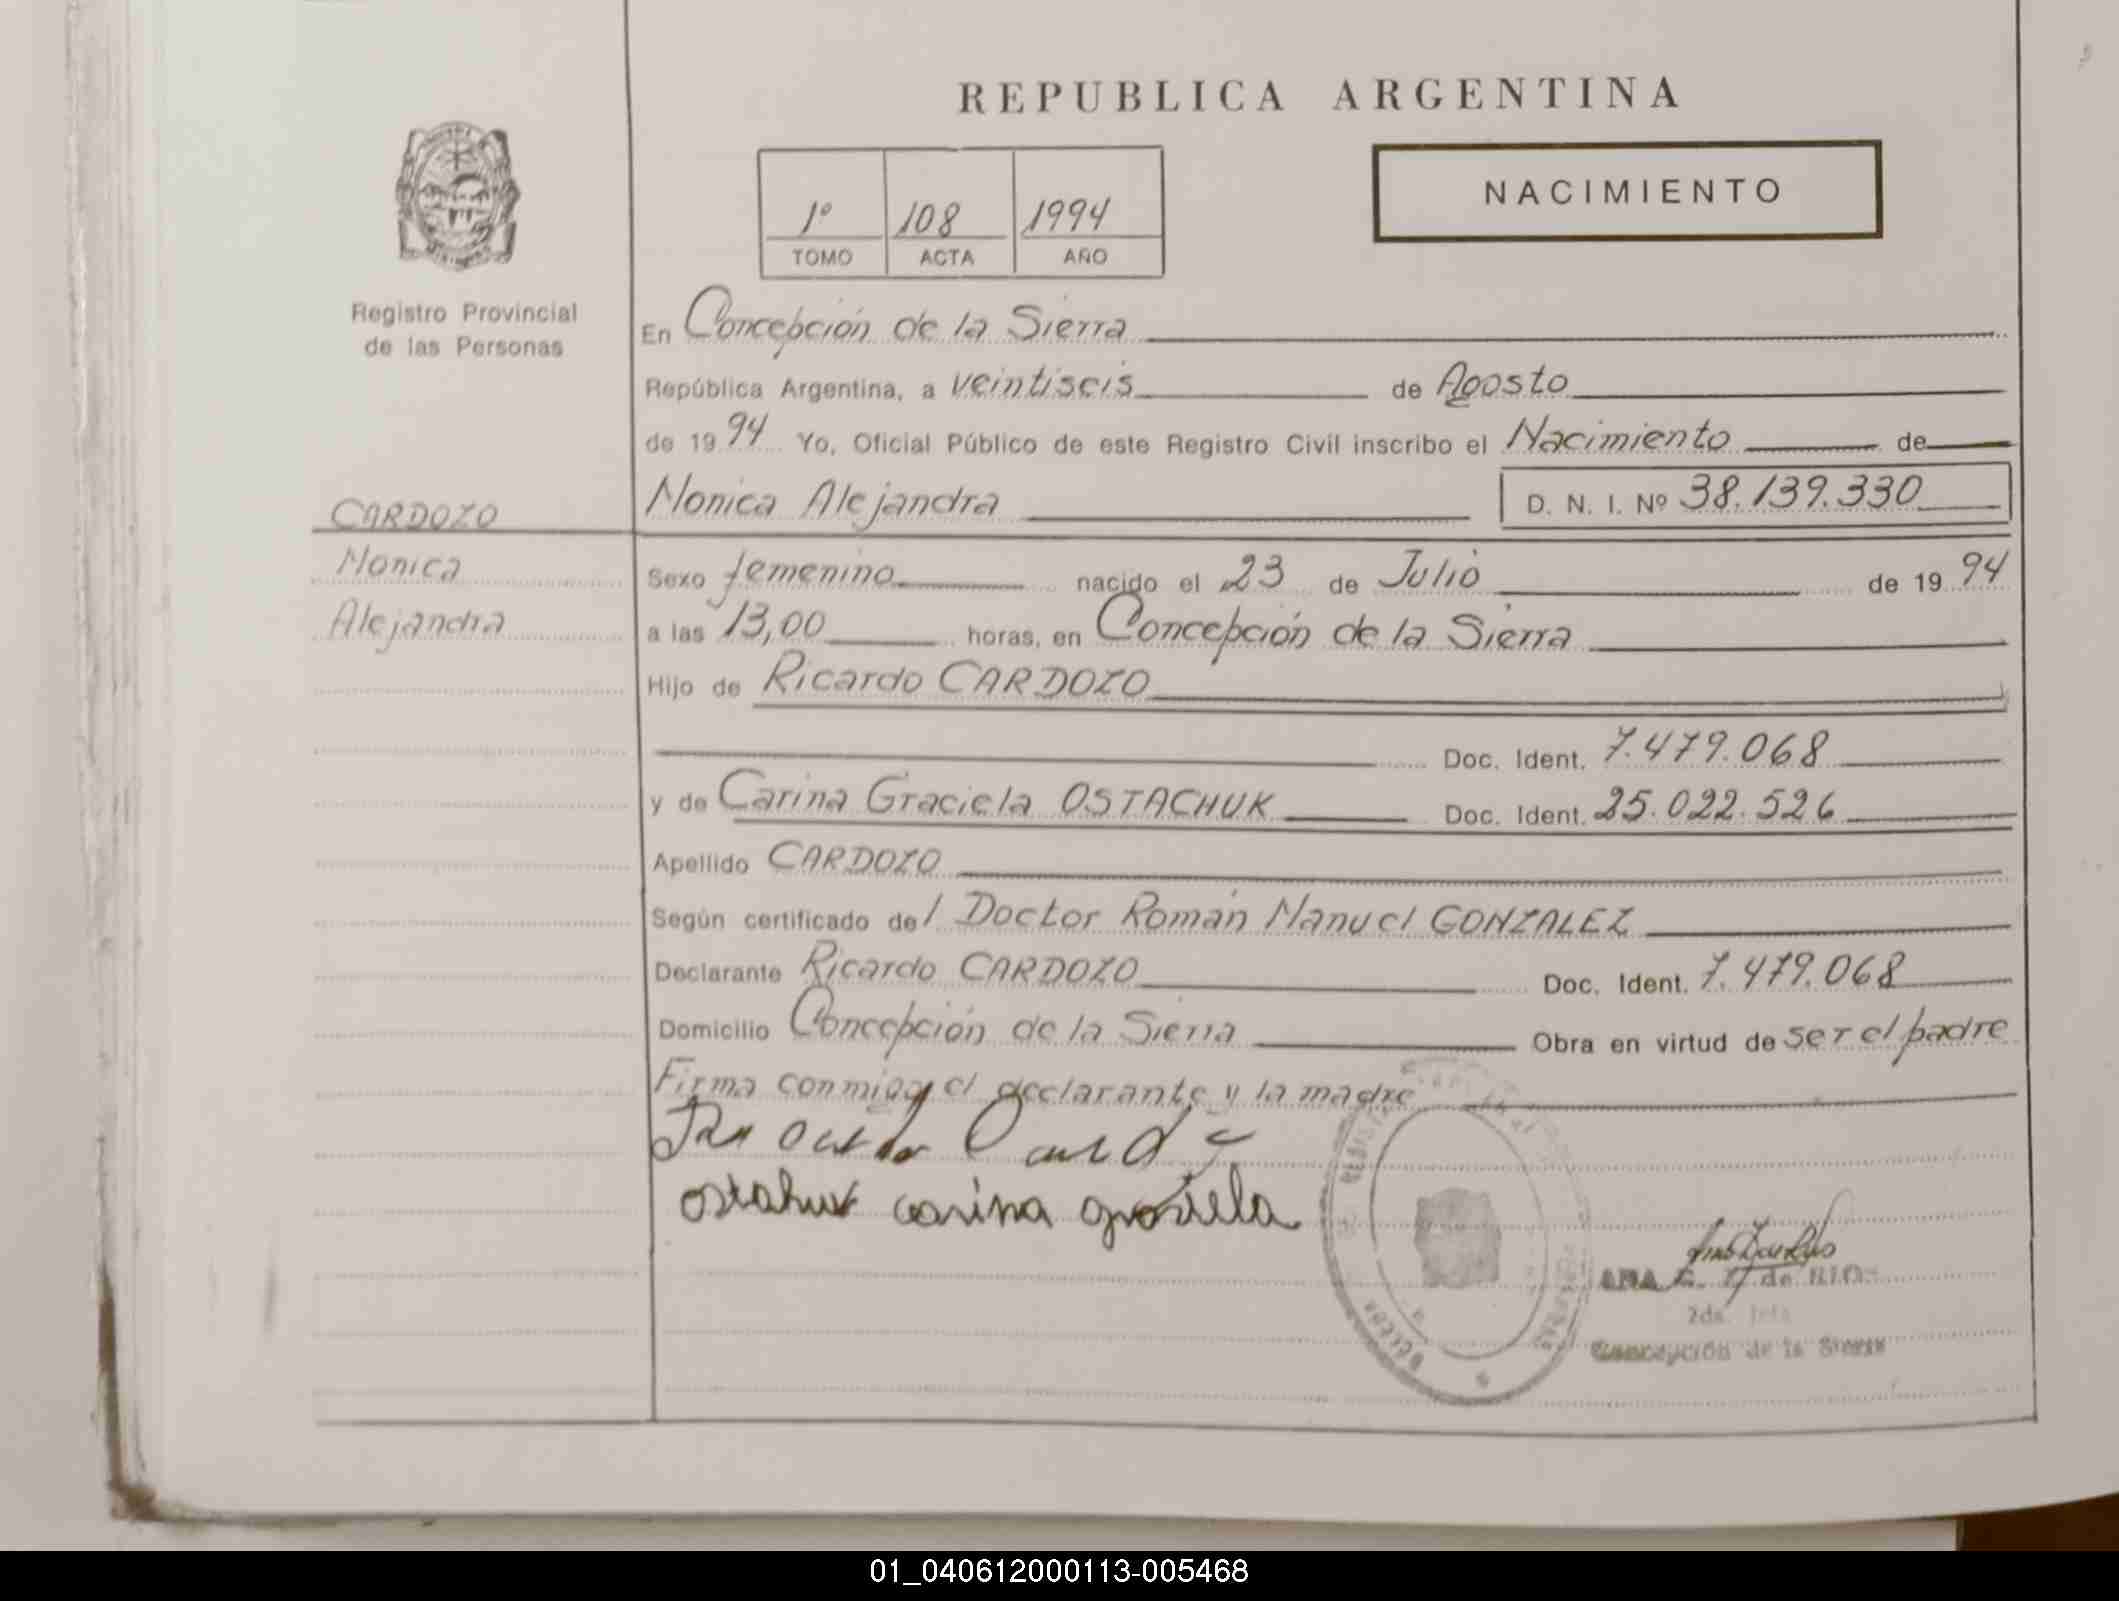 REPUBLICA ARGENTINA
NACIMIENTO
1º 108 1994
TOMO ACTA AÑO
Registro Provincial
de las Personas
En Concepción de la Sierra
República Argentina, a veintiseis de Agosto
de 1994 Yo, Oficial Público de este Registro Civil inscribo el Nacimiento de
CARDOZO
Monica
Alejandra
Monica Alejandra D. N. I. Nº 38.139.330
Sexo femenino nacido el 23 de Julio de 1994
a las 13,00 horas, en Concepción de la Sierra
Hijo de Ricardo CARDOZO
Doc. Ident. 7.479.068
y de Carina Graciela OSTACHUK Doc. Ident. 25.022.526
Apellido CARDOZO
Según certificado del Doctor Román Manuel GONZALEZ
Declarante Ricardo CARDOZO Doc. Ident. 7.479.068
Domicilio Concepción de la Sierra Obra en virtud de ser el padre
Firma conmigo el declarante y la madre
carina
ANA de RIO
2da.
Concepción de la Sierra
01_040612000113-005468